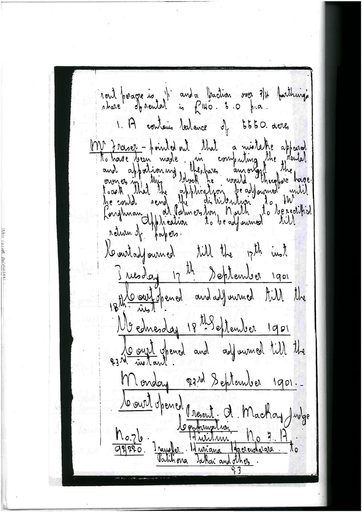 rent per acre is 1/- and a fraction over 3/4 farthings
share of rental is £140. 3. 0 p.a.
1. A contains balance of 5550 acres
Mr Fraser - pointed out that a mistake appeared
to have been made in computing the rental
and apportioning the shares amongst the
owners in this block would therefore have
to ask that the application be adjourned until
he could send the distribution to Mr
at Palmerston North to be rectified
Application to be adjourned till
return of papers.
Court adjourned till the 17th inst
Tuesday 17th September 1901
Court opened and adjourned till the
18th inst.
Wednesday 18th September 1901
Court opened and adjourned till the
23rd instant.
Monday 23rd September 1901.
Court opened
Present. A. Mackay Judge
Confirmation
No. 76 No 3. A
Transfer. to
and others.
83